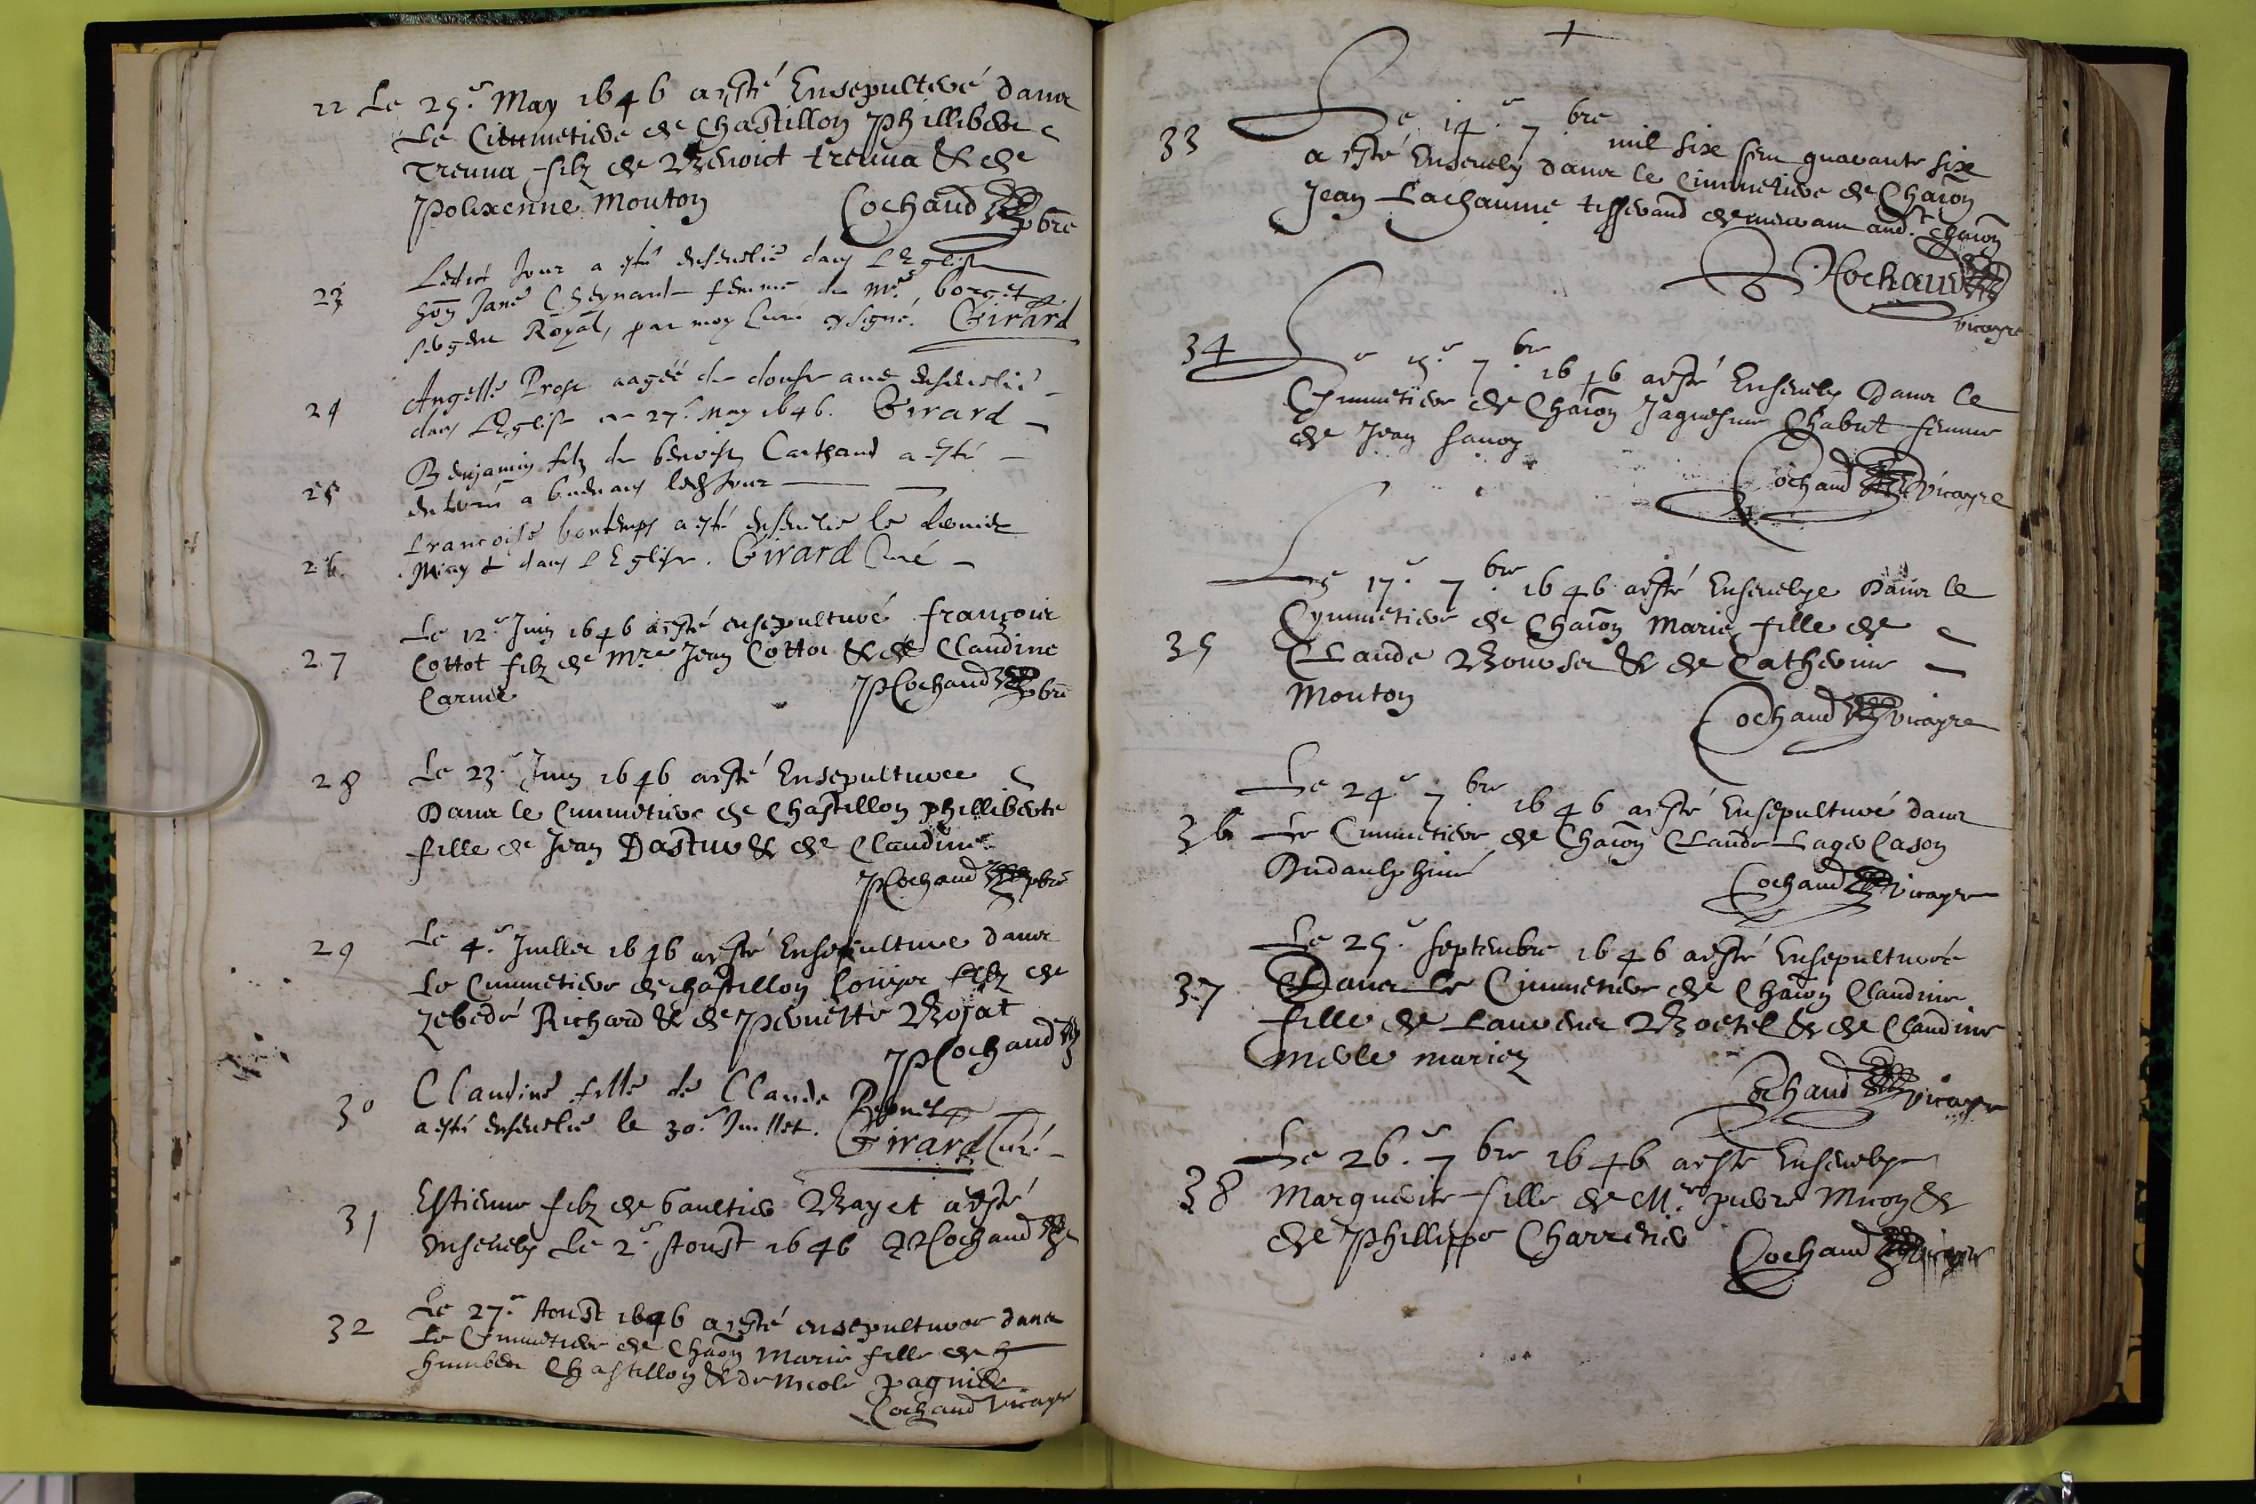 22 Le 25.e May 1646 a esté Ensepulturé dans
Le Cimmetiere de Chastillon Phillibert
Trenna filz de Benoict trenna & de
Polixenne Mouton Cochaud pbre
23 Ledict Jour a esté ensevelie dans l'Eglise
hon Jane Cheynard femme de Mre borget
sergent Royal, par moy Curé ssigné. Girard
24 Angelle Prost aagée de douse ans ensevelie
dans l'Eglise ce 27.e May 1646. Girard
25 Benjamin filz de benoist Carthaud a esté
enterré a budenans led Jour
26 Francoise bontemps a esté ensevelie le dernier
May dans l'Eglise. Girard Curé
27 Le 12.e Juin 1646 a esté ensepulturé françois
Cottot filz de Mre Jean Cottot & de Claudine
Carmé JPCochaud pbre
28 Le 23.e Juin 1646 a esté Ensepulturee
Dans le Cimmetiere de Chastillon Phillibertte
fille de Jean Dastur & de Claudine
JPCochaud pbre
29 Le 4.e Juillet 1646 a esté Ensepulture dans
Le Cimmetiere de chastillon filz de
Zebedé Richard & de Pernette Bojat
JPCochaud
30 Claudine fille de Claude
a esté ensevelie le 30.e Juillet. Girard Curé
31 Estienne filz de Gaultier Bayet a esté
Ensevely Le 2.e Aoust 1646 Cochaud
32 Le 27.e Aoust 1646 a esté ensepulturee dans
Le Cimmetiere de Chaōn Marie fille de
humbert Chastillon & de Nicole
Cochaud Vicayre
33 Le 14.e 7bre mil six sem quarante six
a esté Ensevely dans le Cimmetiere de Chaōn
Jean Lachaume tisserand demeurant aud.t Chaōn
Cochaud
vicayre
34 Le 15.e 7bre 1646 a esté Ensevely Dans le
Cymmetiere de Chaōn Jaquesme Chabut femme
de Jean Savoy
Cochaud Vicayre
Le 17.e 7bre 1646 a esté Ensevelye Dans le
Cymmetiere de Chaōn Marie fille de
35 Claude & de Catherine
Mouton
Cochaud vicayre
Le 24.e 7bre 1646 a esté Ensepulturé dans
36 Le Cimmetiere de Chaōn Claude
Dudaulphiné
Cochaud vicayre
Le 25.e Septembre 1646 a esté Ensepulturée
37 Dans le Cimmetiere de Chaōn Claudine
fille de Laurent Boetel & de Claudine
mariez
Cochaud vicayre
Le 26.e 7bre 1646 a esté Ensevelye
38 Marguerite fille de M.re pierre Micon &
de Phillippe Charretier Cochaud vicayre